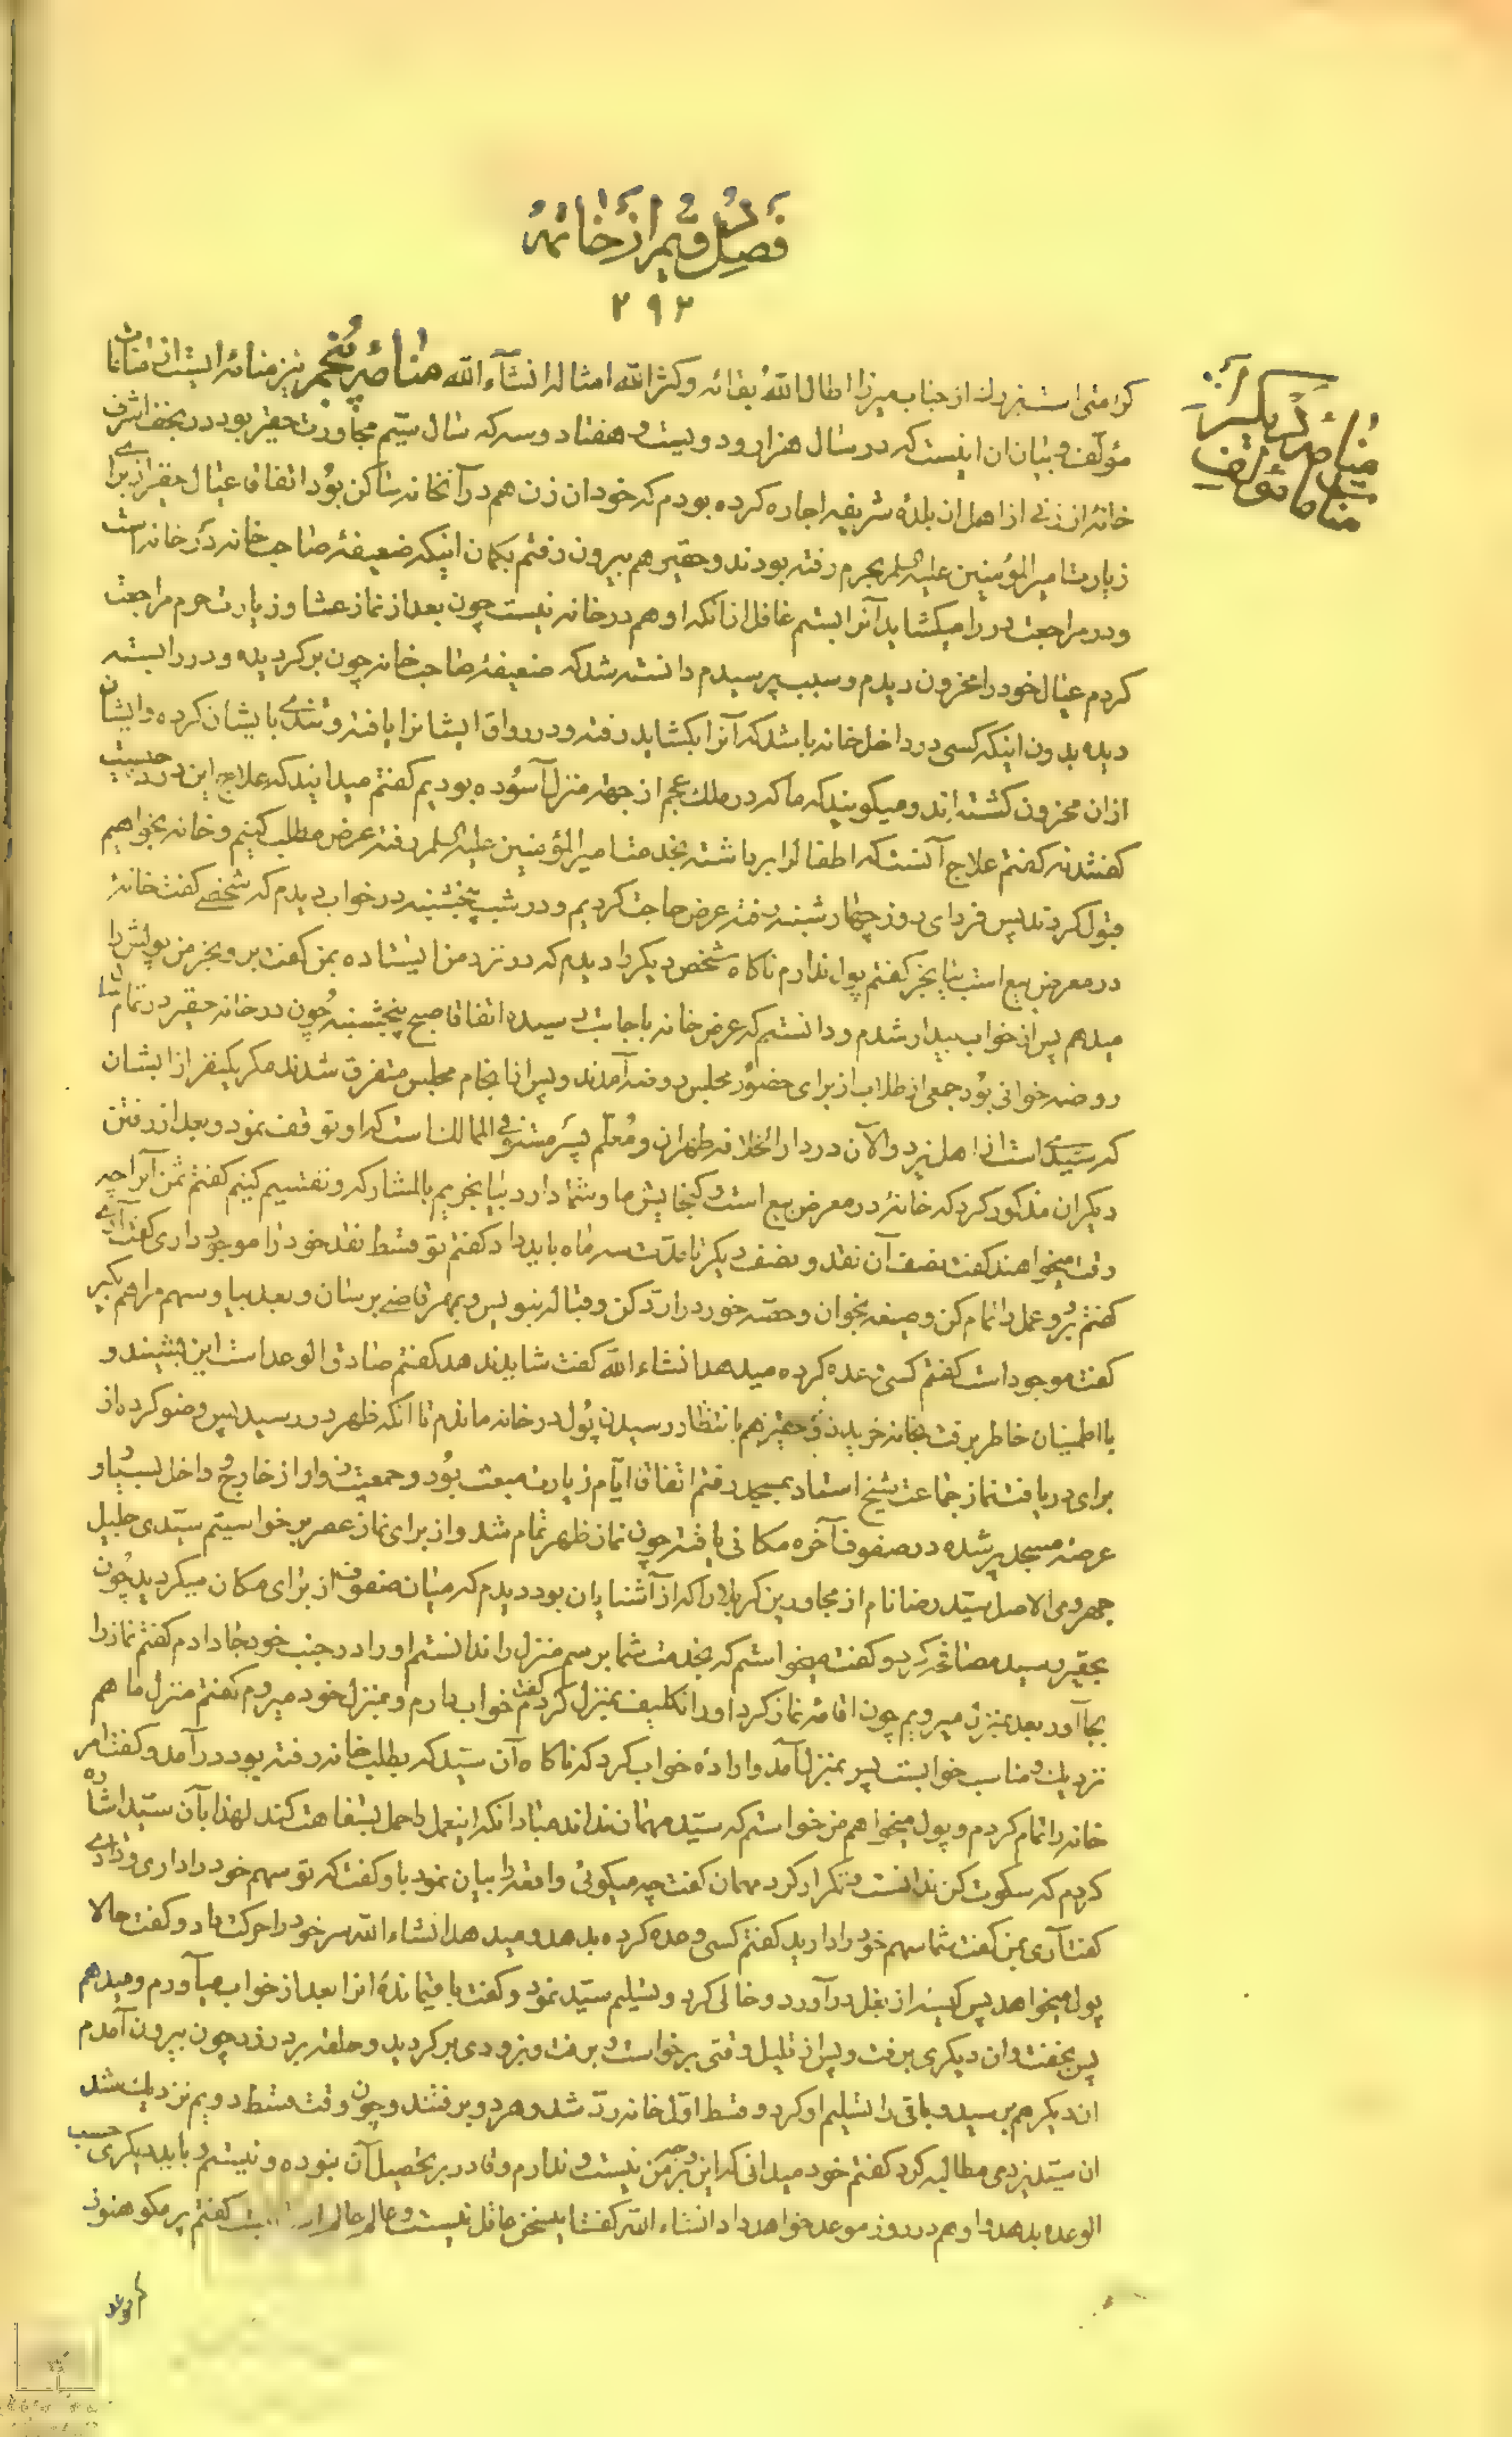 فصل دویم از خاتمه
۲۹۳
منامۀ دیگر از
منامات مؤلف
کرامتی است بزرك از جناب میرزا اطال الله بقائه وکثر الله امثاله انشآء الله منامۀ پنجم نیز منامه ایست از منامات
مؤلف و بیان ان اینست که در سال هزار و دویست و هفتاد و سه که سال سیّم مجاورت حقیر بود در نجف اشرف
خانۀ از زنی از اهل ان بلدۀ شریفه اجاره کرده بودم که خود ان زن هم در آنخانه ساکن بوُد اتفاقا عیال حقیر از برای
زیارت امیر المؤمنین علیه السلم بحرم رفته بودند و حقیر هم بیرون رفتم بکمان اینکه ضعیفۀ صاحب خانه در خانه است
و در مراجعت در را میکشاید آنرا بستم غافل از انکه او هم در خانه نیست چون بعد از نماز عشا و زیارت حرم مراجعت
کردم عیال خود را محزون دیدم و سبب پرسیدم دانسته شد که ضعیفۀ صاحب خانه چون برکردیده و در را بسته
دیده بدون اینکه کسی در داخل خانه باشد که آنرا بکشاید رفته و در رواق ایشانرا یافته و تندی بایشان کرده و ایشان
از ان محزون کشته اند و میکویند که ما که در ملك عجم از جهة منزل آسوُده بودیم کفتم میدانید که علاج این درد چیست
کفتند نه کفتم علاج آنست که اطفال را برداشته بخدمت امیر المؤمنین علیه السلم رفته عرض مطلب کنیم و خانه بخواهیم
قبول کردند پس فردای روز چهارشنبه رفته عرض حاجت کردیم و در شب پنجشنبه در خواب دیدم که شخصی کفت خانۀ
در معرض بیع است بیا بخر کفتم پول ندارم ناکاه شخص دیکر را دیدم که در نزد من ایستاده بمن کفت برو بخر من پولش را
میدهم پس از خواب بیدار شدم و دانستم که عرض خانه باجابت رسیده اتفاقا صبح پنجشنبه چوُن در خانه حقیر در تمام سال
روضه خوانی بوُد جمعی از طلاب از برای حضوُر مجلس روضه آمدند و پس از انجام مجلس متفرق شدند مکر یکنفر از ایشان
که سیّدی است از اهل یزد و الآن در دار الخلافه طهران و مُعلّم پسَر مستوفی الممالك است که او توقف نمود و بعد از رفتن
دیکران مذکور کرد که خانۀ در معرض بیع است و کنجایش ما و شما دارد بیا بخریم بالمشارکه و تقسیم کنیم کفتم ثمن آنرا چه
وقت میخواهند کفت نصف آن نقد و نصف دیکر تا مدّت سه ماه باید داد کفتم تو قسط نقد خود را موجود داری کفت آری
کفتم برُو عمل را تمام کن و صیغه بخوان و حصّه خود را ردّ کن و قباله بنویس و بمهر قاضی برسان و بعد بیا و سهم مرا هم بکیر
کفت موجود است کفتم کسی وعده کرده میدهد انشاء الله کفت شاید ندهد کفتم صادق الوعد است این بشنید و
با اطمینان خاطر برفت بخانه خریدن و حقیر هم بانتظار رسیدن پوُل در خانه ماندم تا انکه ظهر در رسید پس وضو کرده از
برای دریافت نماز جماعت شیخ استاد بمسجد رفتم اتفاقا ایّام زیارت مبعث بوُد و جمعیّت زوار از خارج و داخل بسیار و
عرصه مسجد پر شده در صفوف آخره مکانی یافته چون نماز ظهر تمام شد و از برای نماز عصر برخواستیم سیّدی جلیل
جهرودی الاصل سیّد رضا نام از مجاورین کربلا را که از آشنایان بود دیدم که میان صفوف از برای مکان میکردید چوُن
بحقیر رسید مصافحه کرد و کفت میخواستم که بخدمت شما برسم منزل را ندانستم او را در جنب خود جا دادم کفتم نماز را
بجا آور بعد بمنزل میرویم چون اقامۀ نماز کرد او را تکلیف بمنزل کردم کفت خواب دارم و بمنزل خود میروم کفتم منزل ما هم
نزدیك و مناسب خوابست پس بمنزل آمد و ارادۀ خواب کرد که ناکاه آن سیّد که بطلب خانه رفته بود در آمد و کفت امر
خانه را تمام کردم و پول میخواهم من خواستم که سیّد مهمان نداند مبادا انکه اینعمل را حمل بسفاهت کند لهذا بآن سیّد اشاره
کردم که سکوت کن ندانست و تکرار کرد مهمان کفت چه میکوئی واقعه را بیان نمود باو کفت که تو سهم خود را داری و دادی
کفت آری بمن کفت شما سهم خود را دارید کفتم کسی وعده کرده بدهد و میدهد انشاء الله سر خود را حرکت داد و کفت حالا
پول میخواهد پس کیسه از بغل در آورد و خالی کرد و تسلیم سیّد نمود و کفت باقیماندۀ انرا بعد از خواب میآورم و میدهم
پس بخفت و ان دیکری برفت و پس از قلیل وقتی برخواست و برفت و بزودی برکردید و حلقه بر در زد چون بیرون آمدم
ان دیکر هم برسید و باقی را تسلیم او کرد و قسط اوّل خانه ردّ شد و هر دو برفتند و چون وقت قسط دویم نزدیك شد
ان سیّد یزدی مطالبه کرد کفتم خود میدانی که این وجه بر من نیست و ندارم و قادر بر تحصیل آن نبوده و نیستم و باید دیکری حسب
الوعده بدهد و او هم در روز موعد خواهد داد انشاء الله کفت این سخن عاقل نیست و عالم عالم اسباب است کفتم پر مکو هنوز
وعده